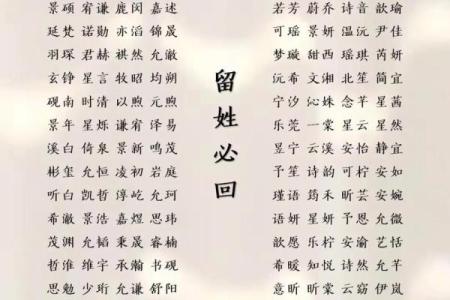 景硕 宥谦 鹿闵 嘉述
延梵 诺勋 亦滔 锦晟
羽琛 君赫 祺然 允澈
玄铮 星言 牧昭 均朔
砚南 时清 以煦 元煦
景年 星烁 谦宥 泽易
溪白 倚泉 景新 鸣茂
彬玺 允恒 凌初 岩庭
听白 凯哲 淳屹 允珂
希澈 景浩 嘉煜 思玮
茂渊 允韬 秉晟 睿楠
哲淮 维宇 承瀚 书砚
思勉 少珩 允谦 舒阳
留姓必回
若芳 蔚乔 诗音 歆瑜
可瑶 景妍 温沅 尹佳
梦璇 甜西 瑶琪 芮妍
沅希 文湘 北笙 简宜
宁汐 沁姝 念芊 星茜
乐莞 一棠 星云 星然
昱宁 云溪 安怡 静宜
予笙 诗韵 可柠 安如
瑾语 筠禾 昕芸 安婉
语妍 星妍 予恩 允微
歆愿 乐柠 安渝 艺恬
希暖 知悦 诗然 允芊
意昕 昕棠 云窈 伊岚